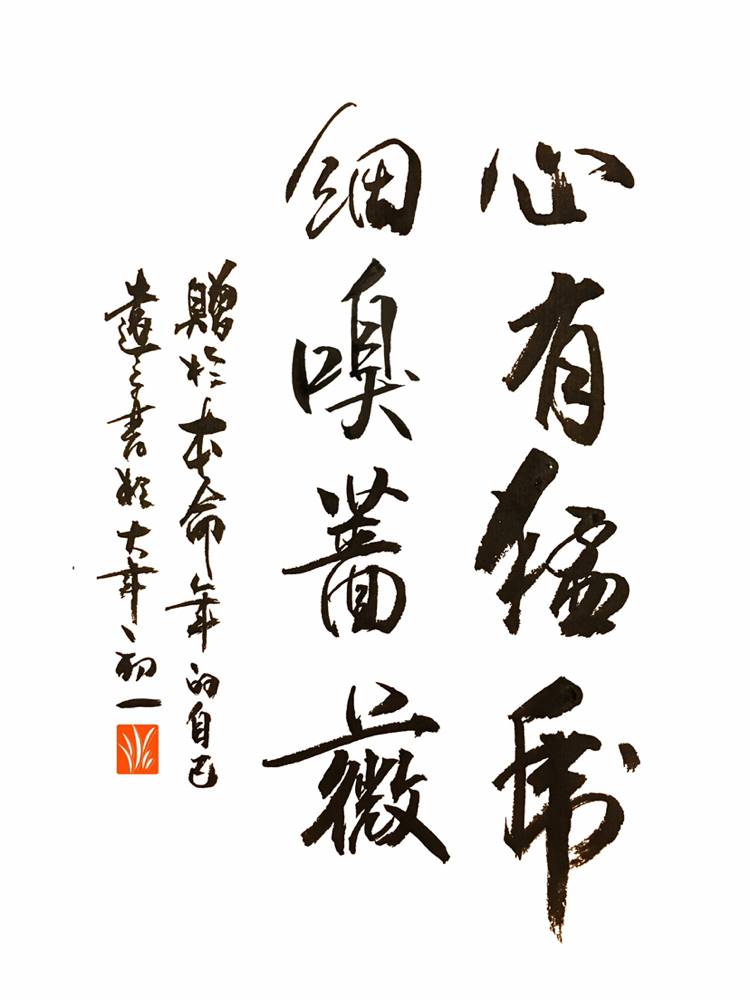 心有猛虎
細嗅薔薇
贈於本命年的自己
之書於大年初一